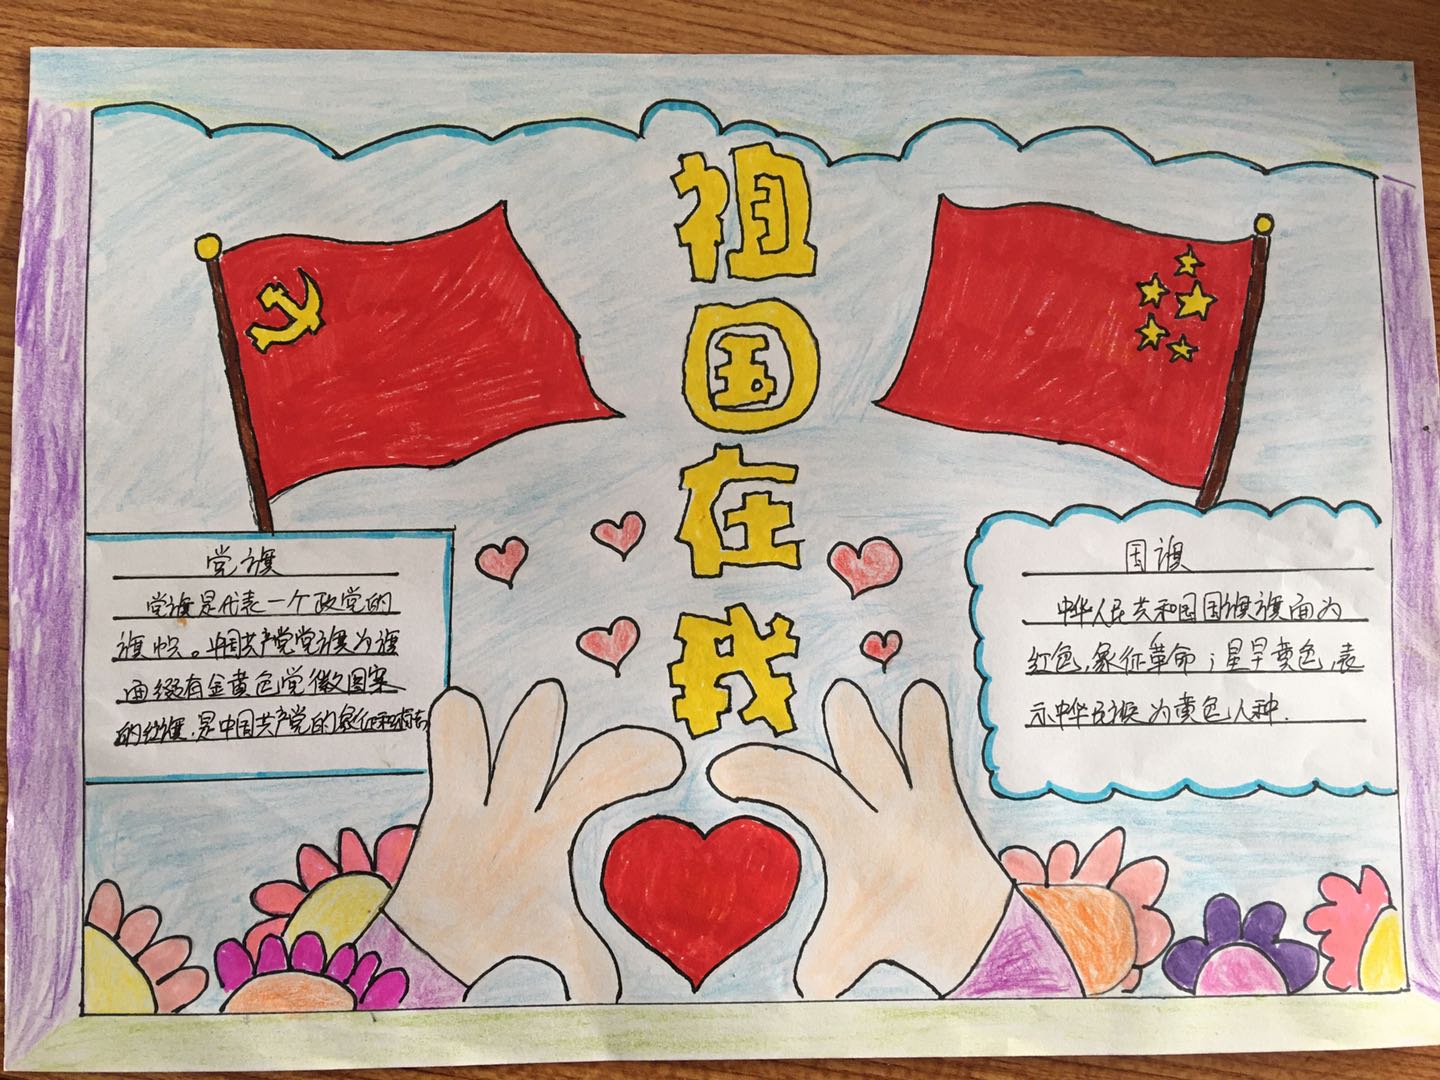 祖国在我
党旗
党旗是代表一个政党的
旗帜。中国共产党党旗为旗
面缀有金黄色党徽图案
的红旗,是中国共产党的象征和标志
国旗
中华人民共和国国旗旗面为
红色,象征革命;星呈黄色,表
示中华民族为黄色人种.